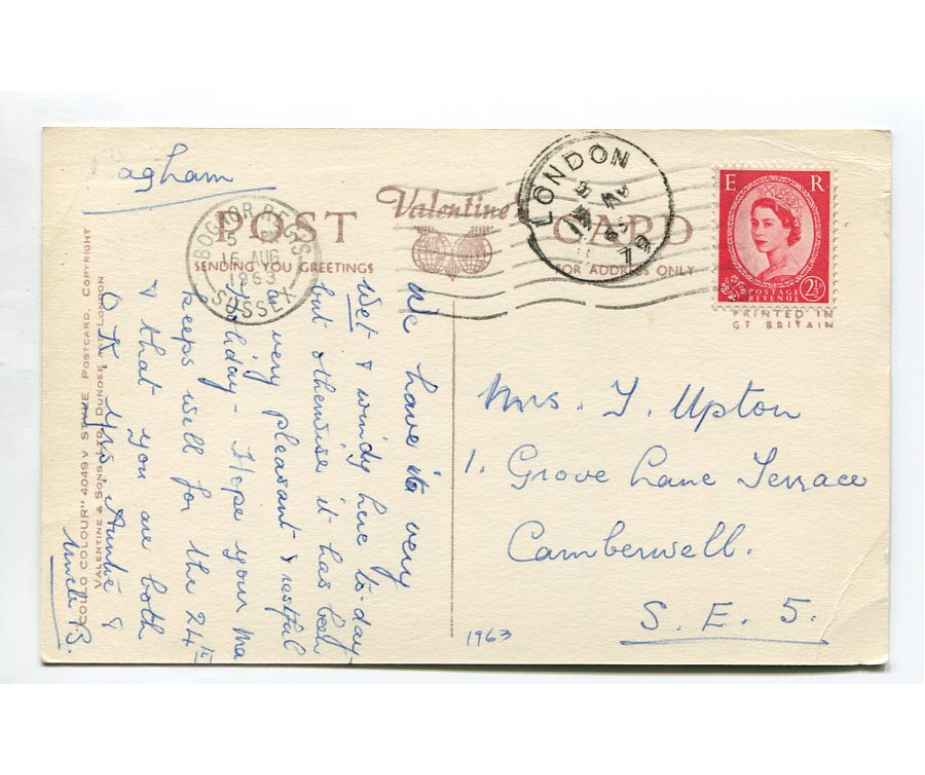 agham
POST
Valentine's
CARD
SENDING YOU GREETINGS
FOR ADDRESS ONLY
BOGNOR REGIS
15 AUG
1963
SUSSEX
LONDON
E R
POSTAGE
REVENUE
2½D
PRINTED IN
GT BRITAIN
We have its very
Wet & windy here to-day
but otherwise it has been
a very pleasant & restful
holiday - Hope your Ma
keeps well for the 24th
& that you are both
O.K. Yrs Auntie &
Uncle B.
VALENTINE & SONS LTD., DUNDEE AND LONDON
COLOUR" 4049V STAVE POSTCARD. COPYRIGHT
Mrs. J. Upton
1. Grove Lane Terrace
Camberwell.
S. E. 5.
1963